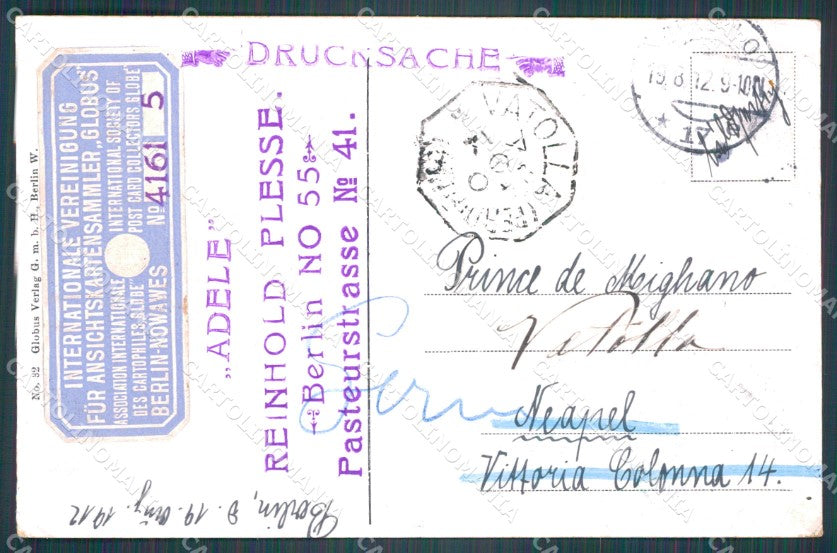 DRUCKSACHE
INTERNATIONALE VEREINIGUNG
FÜR ANSICHTSKARTENSAMMLER „GLOBUS"
ASSOCIATION INTERNATIONALE
DES CARTOPHILES „GLOBE"
INTERNATIONAL SOCIETY OF
POST CARD COLLECTORS GLOBE
BERLIN-NOWAWES
No 4161 5
No. 82 Globus Verlag G. m. b. H., Berlin W.
„ADELE"
REINHOLD PLESSE.
Berlin NO 55
Pasteurstrasse № 41.
Berlin, d. 19. Aug. 1912
VATOLLA
19.8.12.9-10
Prince de Mighano
Vatolla
Neapel
Vittoria Colonna 14.
CARTOLINOMANIA